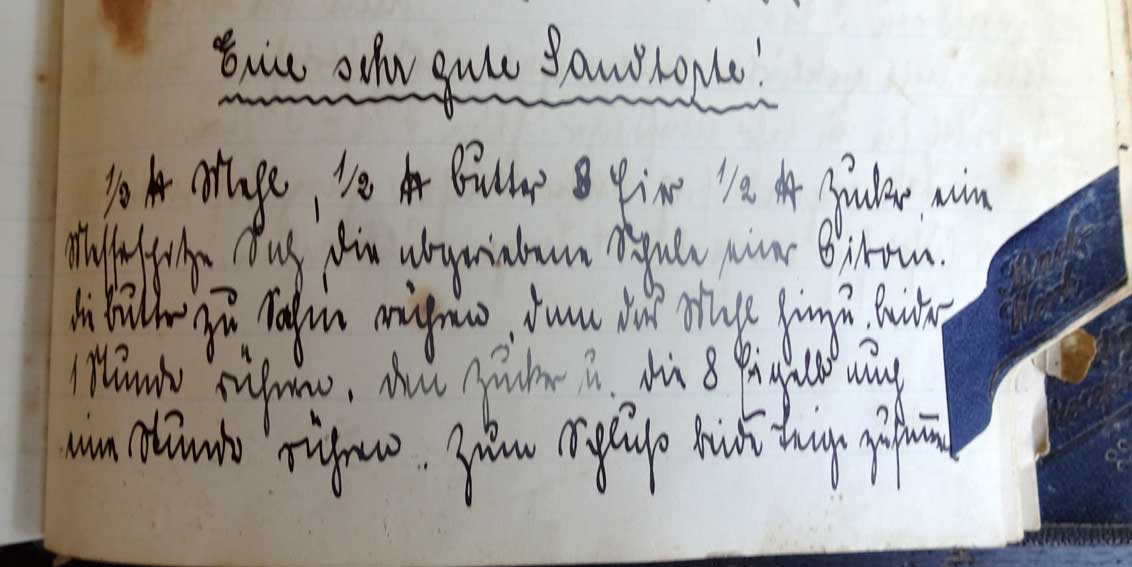 Eine sehr gute Sandtorte!
1/2 ℔ Mehl, 1/2 ℔ Butter 8 Eier 1/2 ℔ Zucker, eine
Messerspitze Salz, die abgeriebene Schale einer Citrone.
die Butter zu Sahne rühren, dann das Mehl hinzu, beides
1 Stunde rühren, den Zucker u. die 8 Eigelb auch
eine Stunde rühren. Zum Schluß beide Teige